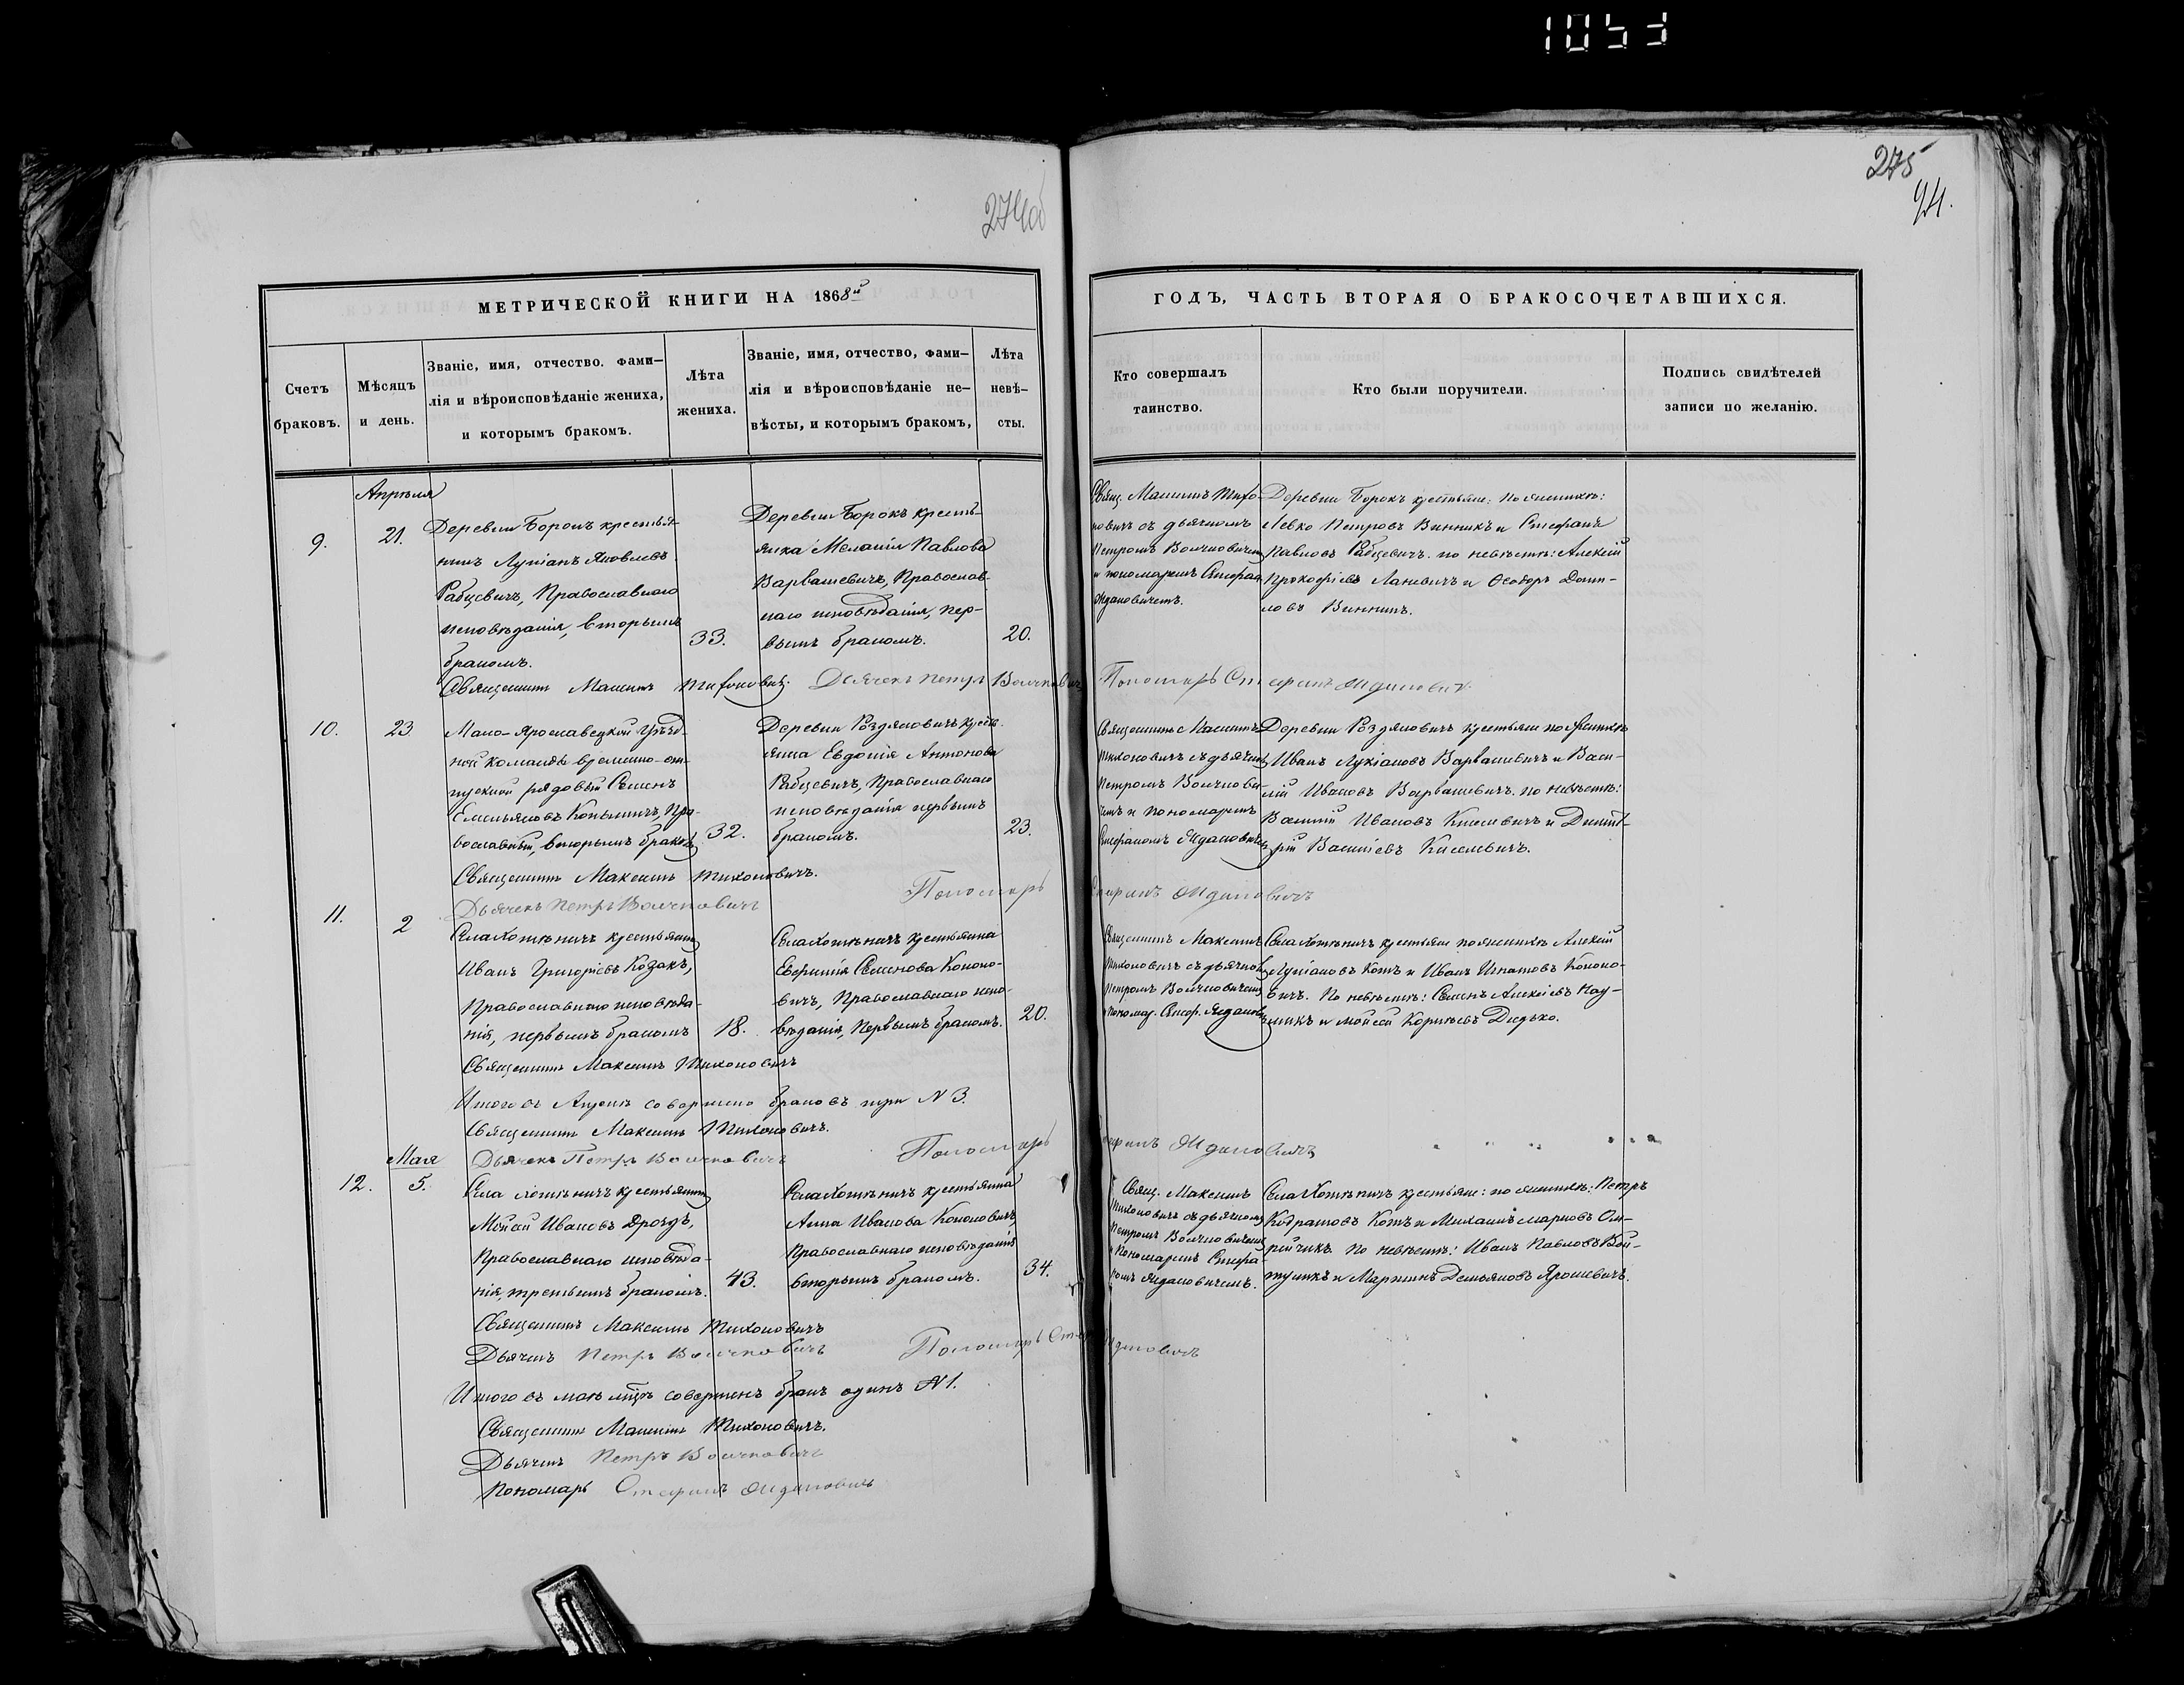 1053
274об
275
94.
МЕТРИЧЕСКОЙ КНИГИ НА 1868й
Счетъ браковъ.
Мѣсяцъ и день.
Званіе, имя, отчество. фами-
лія и вѣроисповѣданіе жениха,
и которымъ бракомъ.
Лѣта жениха.
Званіе, имя, отчество, фами-
лія и вѣроисповѣданіе не-
вѣсты, и которымъ бракомъ,
Лѣта невѣ-
сты.
ГОДЪ, ЧАСТЬ ВТОРАЯ О БРАКОСОЧЕТАВШИХСЯ.
Кто совершалъ
таинство.
Кто были поручители.
Подпись свидѣтелей
записи по желанію.
Апрѣля
9.
21.
Деревни Борокъ крестья-
нинъ Лукіанъ Яковлевъ
Рабцевичъ, Православнаго
исповѣданія, вторымъ
бракомъ.
33.
Деревни Борокъ кресть-
янка Меланія Павлова
Варвашевичъ, Православ-
наго исповѣданія, пер-
вымъ бракомъ.
20.
Свящ. Максимъ Тихо-
новичъ съ дьячкомъ
Петромъ Волчковичемъ
и пономаремъ Стефан.
Ждановичемъ.
Деревни Борокъ крестьяне: по женихѣ:
Левко Петровъ Винникъ и Стефанъ
Павловъ Рабцевичъ. по невѣстѣ: Алексій
Прокофіевъ Ланевичъ и Ѳеодоръ Дани-
ловъ Винникъ.
Священникъ Максимъ Тихоновичъ. Дьячекъ Петръ Волчковичъ Пономарь Стефанъ Ждановичъ.
10.
23
Мало-Ярославецкой Уѣзд-
ной команды временно-от-
пускной рядовый Семенъ
Емельяновъ Копьличъ, Пра-
вославный, вторымъ бракомъ
32.
Деревни Роздяловичъ кресть-
янка Евдокія Антонова
Рабцевичъ, Православнаго
исповѣданія первымъ
бракомъ.
23.
Священникъ Максимъ
Тихоновичъ съ дьячкомъ
Петромъ Волчкови-
чемъ и пономаремъ
Стефаномъ Ждановичемъ
Деревни Роздяловичъ крестьяне по женихѣ
Иванъ Лукіановъ Варвашевичъ и Васи-
лій Ивановъ Варвашевичъ. по невѣстѣ:
Василій Ивановъ Киселевичъ и Димит-
рій Василіевъ Киселевичъ.
Священникъ Максимъ Тихоновичъ.
Дьячекъ Петръ Волчковичъ Пономарь Стефанъ Ждановичъ
11.
2
Села Хотѣничъ крестьянинъ
Иванъ Григоріевъ Козакъ,
Православнаго исповѣда-
нія, первымъ бракомъ
18.
Села Хотѣничъ крестьянка
Евфимія Семенова Кононо-
вичъ, Православнаго испо-
вѣданія, Первымъ бракомъ.
20.
Священникъ Максимъ
Тихоновичъ съ дьячкомъ
Петромъ Волчковичемъ
и пономар. Стеф. Ждановичемъ
Села Хотѣничъ крестьяне по женихѣ Алексій
Лукіановъ Котъ и Иванъ Игнатовъ Кононо-
вичъ. По невѣстѣ: Семенъ Алексѣевъ Нау-
микъ и Моисей Корнѣевъ Дидько.
Священникъ Максимъ Тихоновичъ
Итого въ Апрѣлѣ совершено браковъ три N 3.
Священникъ Максимъ Тихоновичъ.
Дьячекъ Петръ Волчковичъ Пономарь Стефанъ Ждановичъ
Мая
12.
5.
Села Хотѣничъ крестьянинъ
Моисей Ивановъ Дроздъ,
Православнаго исповѣда-
нія, третьимъ бракомъ.
43.
Села Хотѣничъ крестьянка
Анна Иванова Кононовичъ,
Православнаго исповѣданія
вторымъ бракомъ.
34.
Свящ. Максимъ
Тихоновичъ съ дьячкомъ
Петромъ Волчковичемъ
и Пономаремъ Стефа-
номъ Ждановичемъ.
Села Хотѣничъ крестьяне: по женихѣ: Петръ
Кодратовъ Котъ и Михаилъ Марковъ Он-
рійчикъ. По невѣстѣ: Иванъ Павловъ Вой-
тушкъ и Мартинъ Демьяновъ Ярошевичъ.
Священникъ Максимъ Тихоновичъ
Дьячекъ Петръ Волчковичъ Пономарь Стефанъ Ждановичъ
Итого въ маѣ м͠цѣ совершенъ бракъ одинъ N 1.
Священникъ Максимъ Тихоновичъ.
Дьячекъ Петръ Волчковичъ
Пономарь Стефанъ Ждановичъ